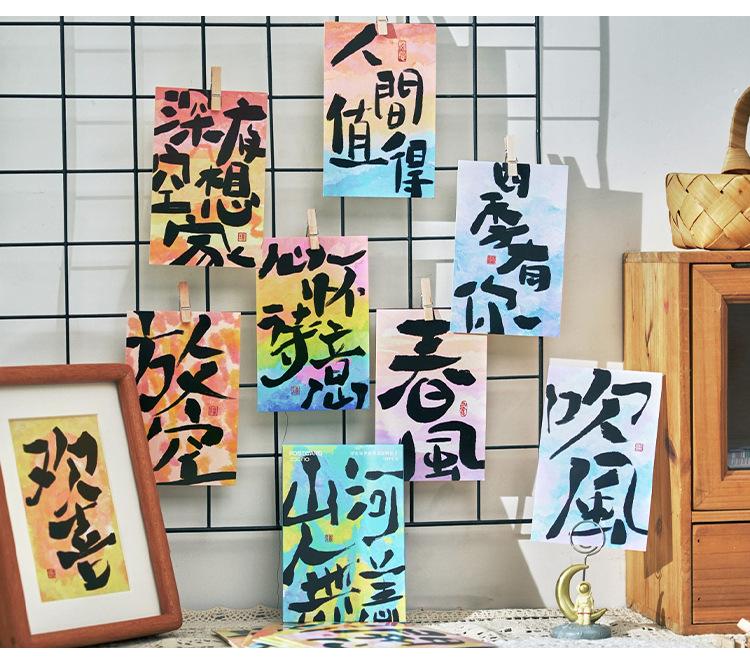 人間
值得
深夜
空想
家
四季有你
心怀
放空
春風
吹風
欢喜
山河
人
POSTCARD